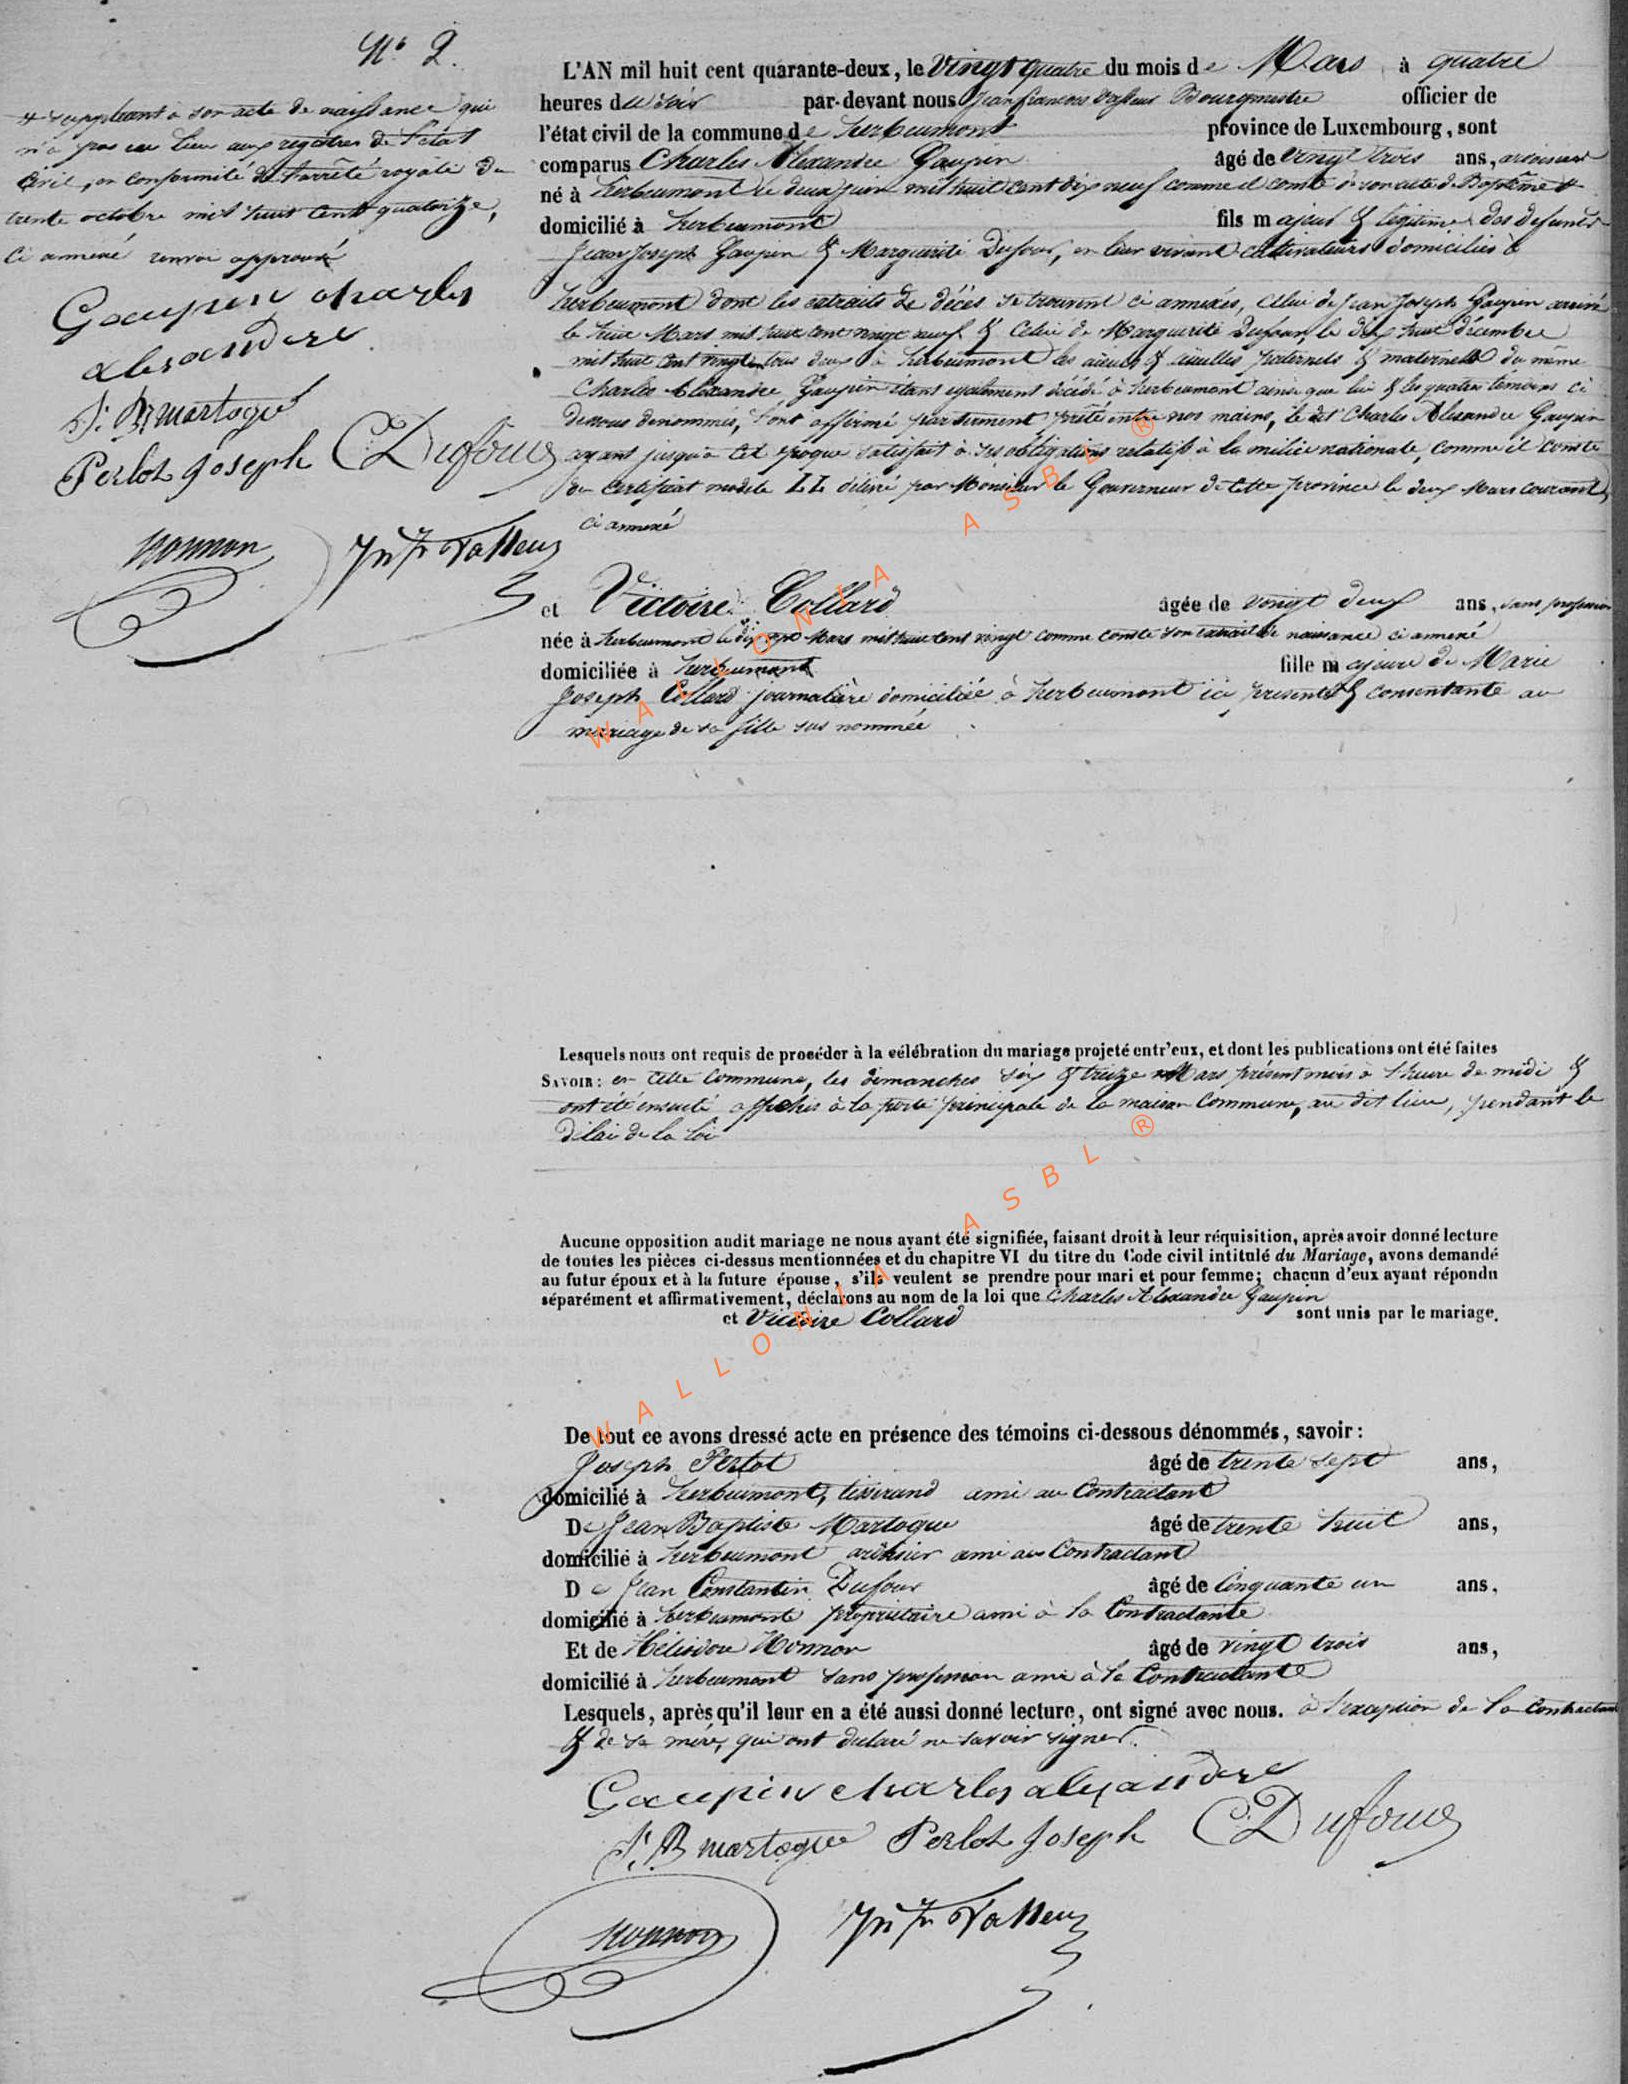 N° 2.
+ suppléant à son acte de naissance qui
n'a pas eu lieu aux registres de l'état
Civil, en conformité de l'arrêté royale du
trente octobre mil huit cent quatorze,
ci annexé renvoi approuvé
Gaupin charles
alexandre
J. B martoque
Perlot Joseph C Dufour
Nonnon Jn Fr Vasseur
L'AN mil huit cent quarante-deux, le Vingt quatre du mois de Mars à quatre
heures du soir par-devant nous Jean francois Vasseur Bourgmestre officier de
l'état civil de la commune de herbeumont province de Luxembourg, sont
comparus Charles Alexandre Gaupin âgé de vingt trois ans, ardoisier
né à herbeumont le deux juin mil huit cent dix neuf comme il conste de son acte de Baptême +
domicilié à herbeumont fils majeur & légitime des defunts
Jean Joseph Gaupin & Marguerite Dufour, en leur vivant cultivateurs domiciliés à
herbeumont dont les extraits de décès se trouvent ci annexés, celui de Jean Joseph Gaupin arrivé
le huit Mars mil huit cent vingt neuf & Celui de Marguerite Dufour, le dix huit décembre
mil huit cent vingt tous deux à herbeumont les aïeuls & aïeulles paternels & maternels du même
Charles Alexandre Gaupin étant egalement décédé à herbeumont ainsi que lui & les quatre témoins ci
dessous denommés, l'ont affirmé par serment prêté entre nos mains, le dit Charles Alexandre Gaupin
ayant jusqu'à cet époque satisfait à ses obligations relatifs à la milice nationale, comme il conste
du certificat modele LL délivré par Monsieur le Gouverneur de cette province le deux Mars courant
ci annexé
et Victoire Collard âgée de vingt deux ans, sans profession
née à herbeumont le dix Mars mil huit cent vingt comme conste son extrait de naissance ci annexé
domiciliée à herbeumont fille majeure de Marie
Joseph Collard journalière domiciliée à herbeumont ici présente & consentante au
mariage de sa fille sus nommée
Lesquels nous ont requis de procéder à la célébration du mariage projeté entr'eux, et dont les publications ont été faites
SAVOIR: en cette Commune, les dimanches six & treize Mars présent mois à l'heure de midi &
ont été ensuite affichés à la porte principale de la maison Commune, au dit lieu, pendant le
délai de la loi
Aucune opposition audit mariage ne nous ayant été signifiée, faisant droit à leur réquisition, après avoir donné lecture
de toutes les pièces ci-dessus mentionnées et du chapitre VI du titre du Code civil intitulé du Mariage, avons demandé
au futur époux et à la future épouse, s'ils veulent se prendre pour mari et pour femme; chacun d'eux ayant répondu
séparément et affirmativement, déclarons au nom de la loi que Charles Alexandre Gaupin
et Victoire Collard sont unis par le mariage.
De tout ce avons dressé acte en présence des témoins ci-dessous dénommés, savoir:
Joseph Perlot âgé de trente sept ans,
domicilié à herbeumont, tisserand ami au Contractant
De Jean Baptiste Martoque âgé de trente huit ans,
domicilié à herbeumont ami au Contractant
De Jean Constantin Dufour âgé de Cinquante un ans,
domicilié à herbeumont propriétaire ami à la Contractante
Et de Héliodore Nonnon âgé de vingt trois ans,
domicilié à herbeumont sans profession ami à la Contractante
Lesquels, après qu'il leur en a été aussi donné lecture, ont signé avec nous. à l'exception de la Contractante
& de sa mère, qui ont declaré ne savoir signer.
Gaupin charles alexandre
J. B martoque Perlot Joseph C Dufour
Nonnon Jn Fr Vasseur
WALLONIA ASBL ®
WALLONIA ASBL ®